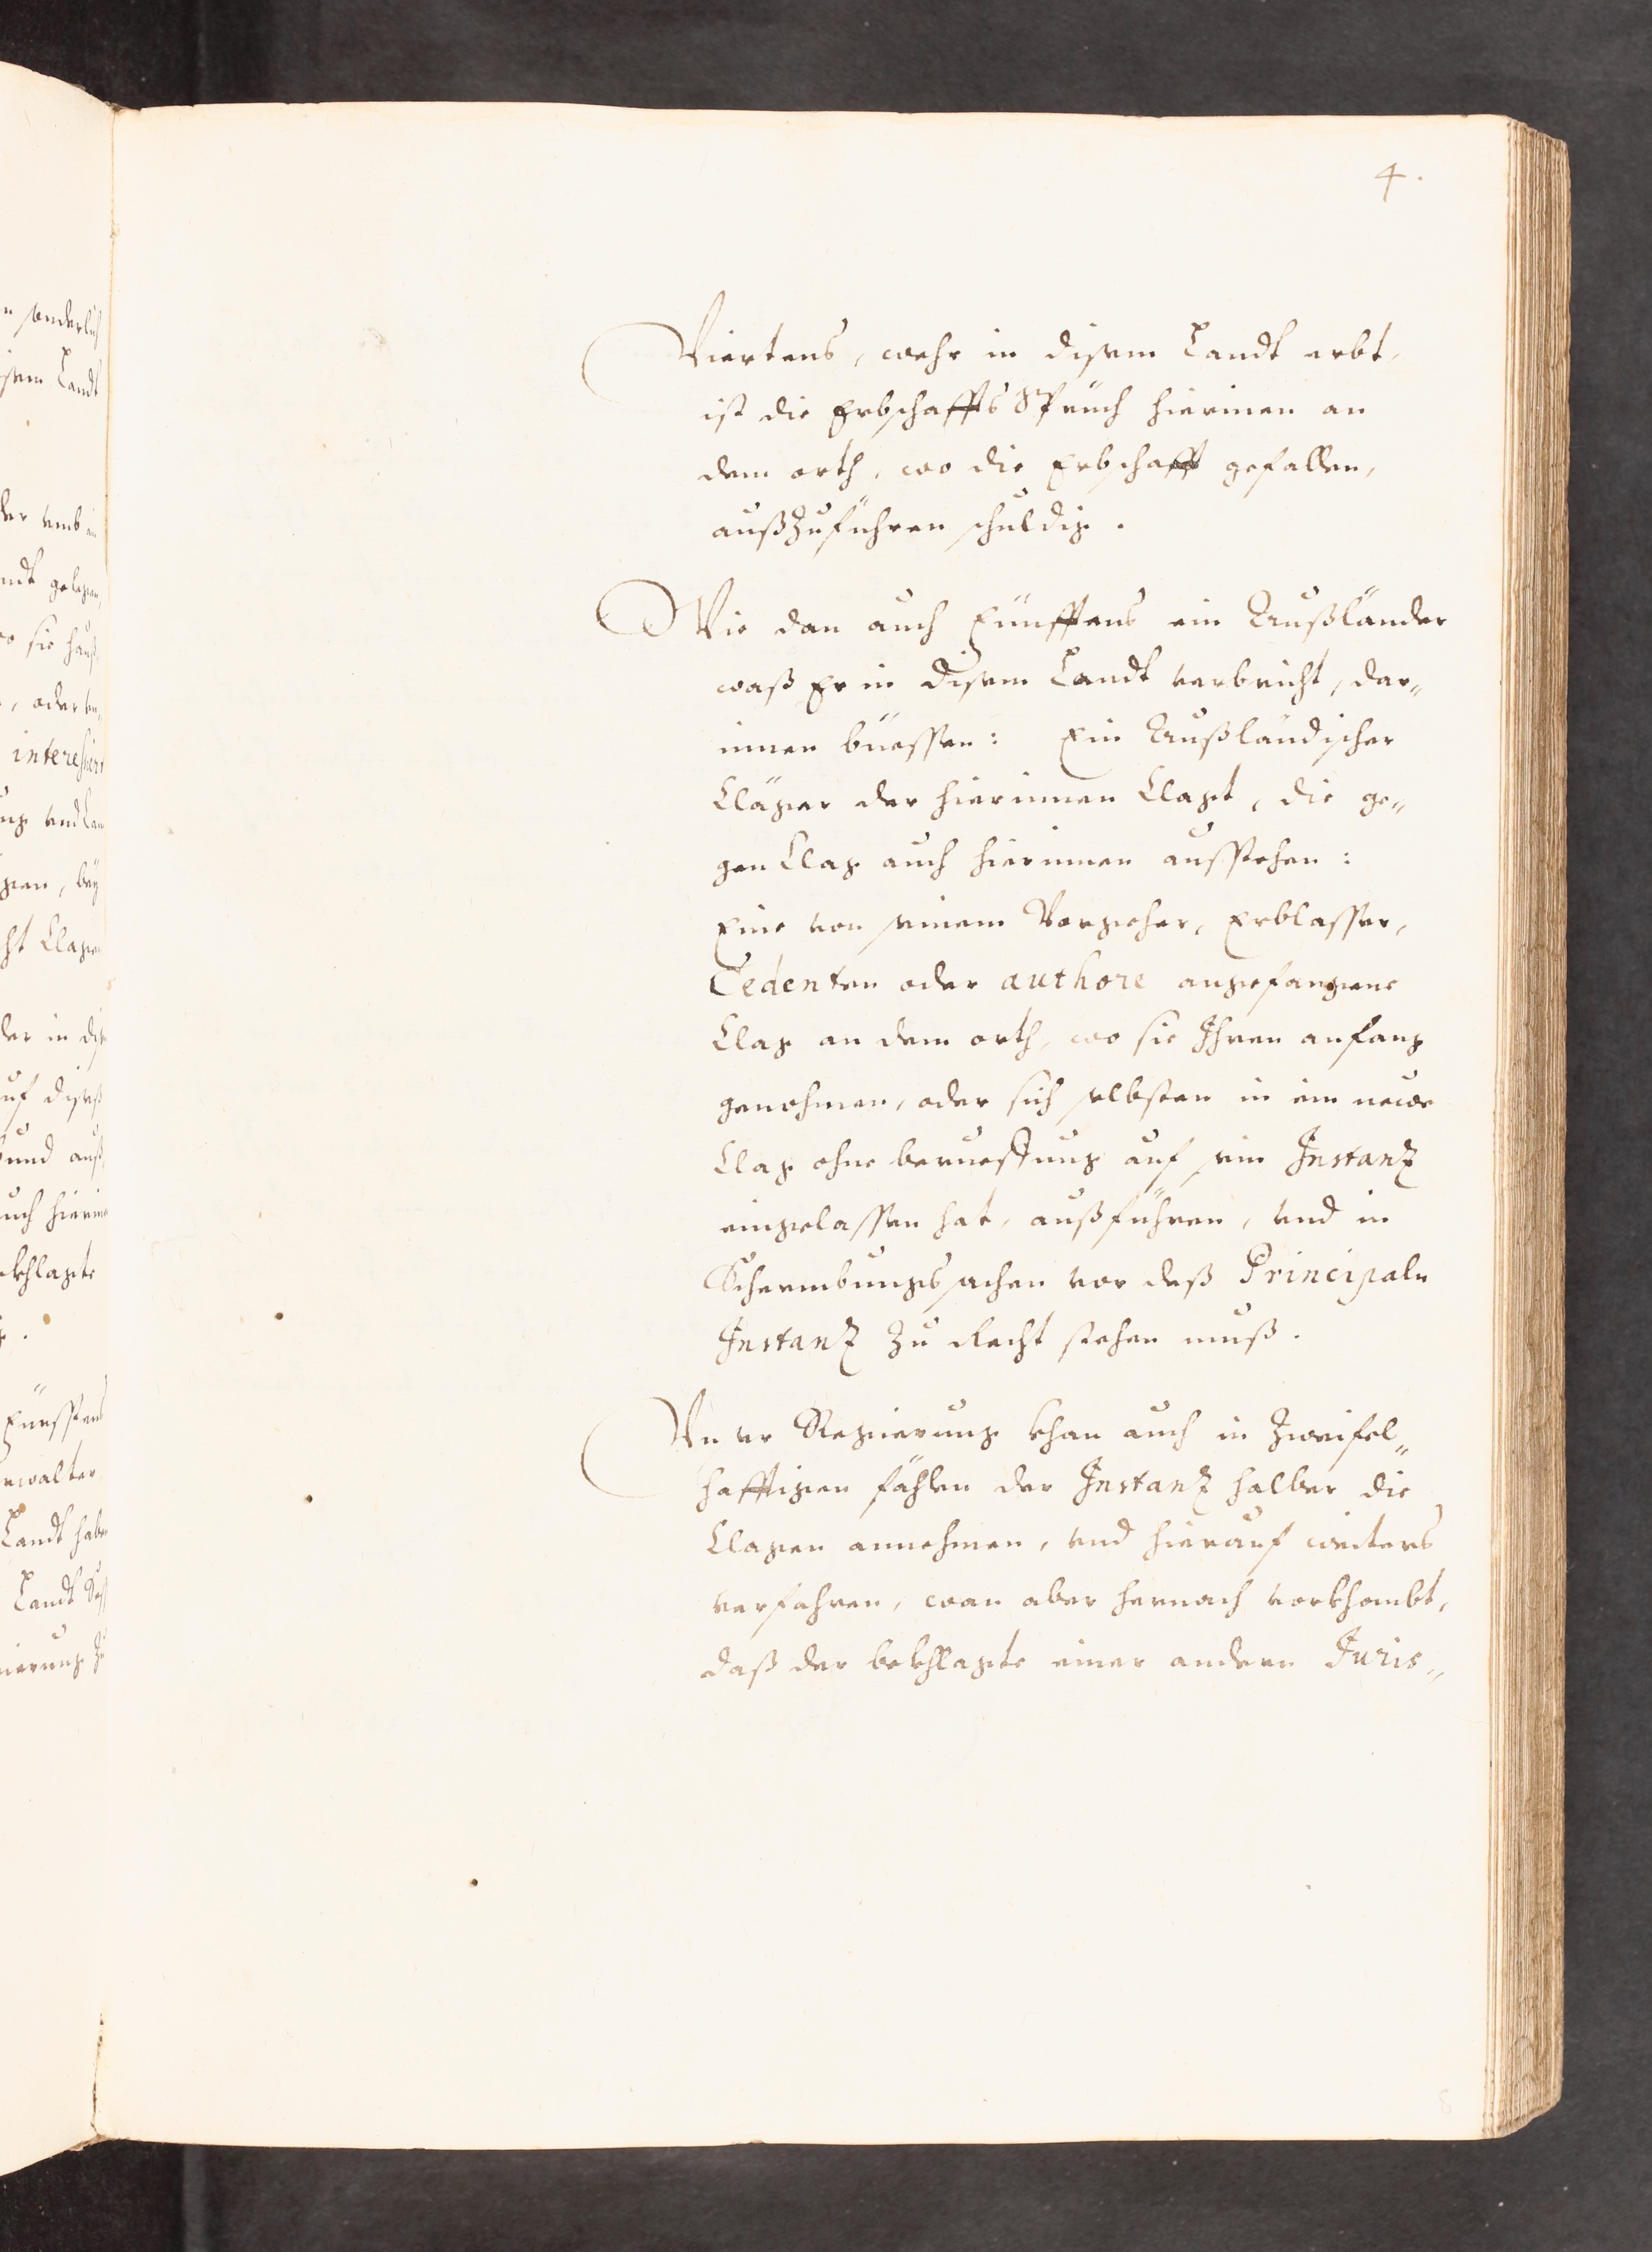 4.
Viertens, wehr in disem Landt erbt,
ist die Erbschaffts Sprüch hierinen an
dem orth, wo die Erbschafft gefallen,
außzuführen schuldig.
Wie dan auch Fünfftens ein Außländer
waß Er in disem Landt verbricht, dar„
innen büessen: Ein Außländischer
Cläger der hierinnen Clagt, die ge„
gen Clag auch hierinnen ausstehen:
Eine von seinem Vorgeher, Erblasser,
Cedenten oder authore angefangene
Clag an dem orth, wo sie Ihren anfang
genohmen, oder sich selbsten in ein newe
Clag ohne berueffung auf sein Instanz
eingelassen hat, außführen, und in
Schermbungssachen vor deß Principaln
Instanz zu Recht stehen muß.
Unser Regierung khan auch in zweifel„
hafftigen fählen der Instanz halber die
Clagen annehmen, und hierauf weiters
verfahren, wan aber hernach vorkhombt,
daß der bekhlagte einer andern Juris„